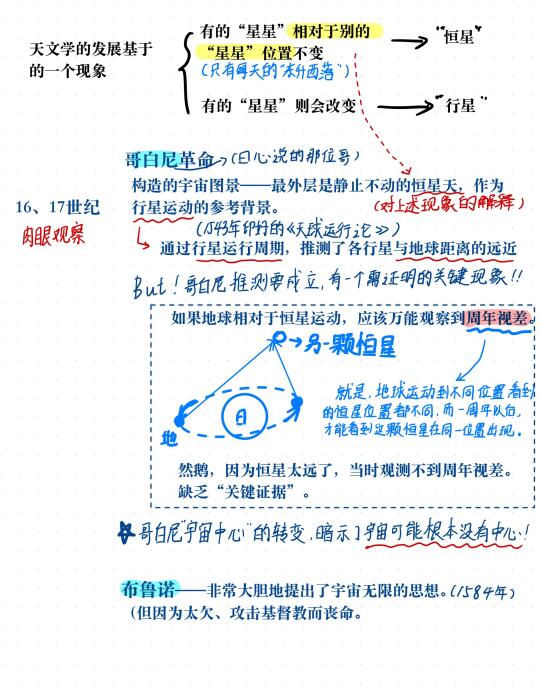 有的“星星”相对于别的
“星星”位置不变
“恒星”
天文学的发展基于
的一个现象
(只有每天的“东升西落”)
有的“星星”则会改变
“行星”
哥白尼革命→(日心说的那位哥)
构造的宇宙图景——最外层是静止不动的恒星天，作为
行星运动的参考背景。
(对上述现象的解释)
16、17世纪
肉眼观察
(1543年印行的《天球运行论》)
通过行星运行周期，推测了各行星与地球距离的远近
But！哥白尼推测要成立，有一个需证明的关键现象!!
如果地球相对于恒星运动，应该万能观察到周年视差。
→另一颗恒星
日
地
就是，地球运动到不同位置看到
的恒星位置都不同，而一周年以后，
才能看到定颗恒星在同一位置出现。
然鹅，因为恒星太远了，当时观测不到周年视差。
缺乏“关键证据”。
哥白尼“宇宙中心”的转变，暗示了宇宙可能根本没有中心！
布鲁诺——非常大胆地提出了宇宙无限的思想。(1584年)
(但因为太欠、攻击基督教而丧命。